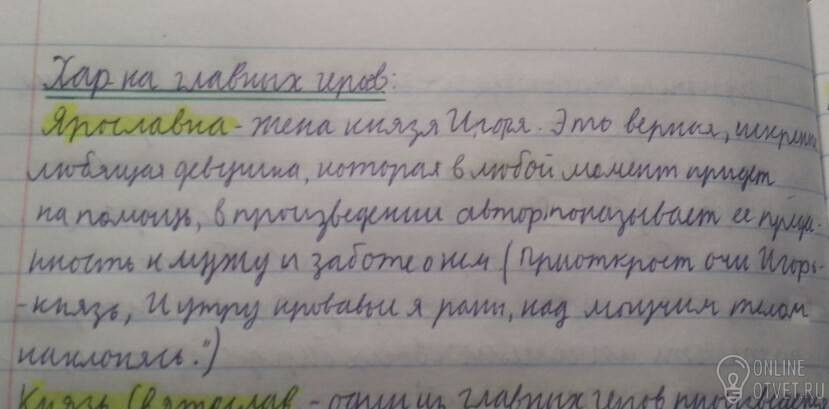 Хар-ка главных геров:
Ярославна - жена князя Игоря. Это верная, искренне
любящая девушка, которая в любой момент придет
на помощь, в произведении автор показывает ее преда-
нность к мужу и заботе о нем (Приоткроет очи Игорь-
-князь, И утру кровавые я раны, над могучим телом
наклонясь.")
Князь Святослав - один из главных геров
ONLINE
OTVET.RU